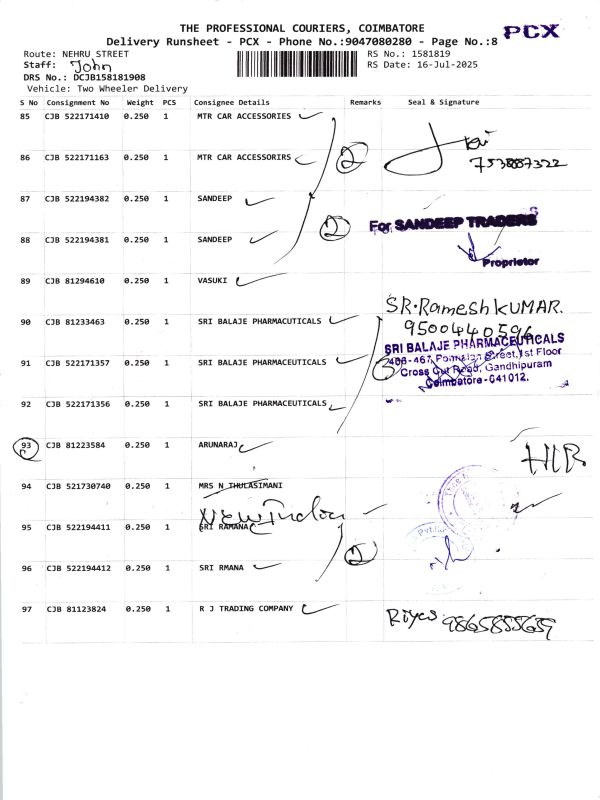 THE PROFESSIONAL COURIERS, COIMBATORE
PCX
Delivery Runsheet - PCX - Phone No.:9047080280 - Page No.:8
Route: NEHRU STREET
RS No.: 1581819
Staff: John
RS Date: 16-Jul-2025
DRS No.: DCJB158181908
Vehicle: Two Wheeler Delivery
S No Consignment No Weight PCS Consignee Details Remarks Seal & Signature
85 CJB 522171410 0.250 1 MTR CAR ACCESSORIES
86 CJB 522171163 0.250 1 MTR CAR ACCESSORIRS 2
87 CJB 522194382 0.250 1 SANDEEP
For SANDEEP TRADERS
88 CJB 522194381 0.250 1 SANDEEP 2
Proprietor
89 CJB 81294610 0.250 1 VASUKI
SR.Ramesh KUMAR.
90 CJB 81233463 0.250 1 SRI BALAJE PHARMACUTICALS
9500440596
SRI BALAJE PHARMACEUTICALS
91 CJB 522171357 0.250 1 SRI BALAJE PHARMACEUTICALS 3
466-467, Ponnaian Street, 1st Floor
Cross Cut Road, Gandhipuram
Coimbatore-641012.
92 CJB 522171356 0.250 1 SRI BALAJE PHARMACEUTICALS
93 CJB 81223584 0.250 1 ARUNARAJ
94 CJB 521730740 0.250 1 MRS N THULASIMANI
New India
95 CJB 522194411 0.250 1 SRI RAMANA
96 CJB 522194412 0.250 1 SRI RMANA 2
97 CJB 81123824 0.250 1 R J TRADING COMPANY
Riyes 9865855659